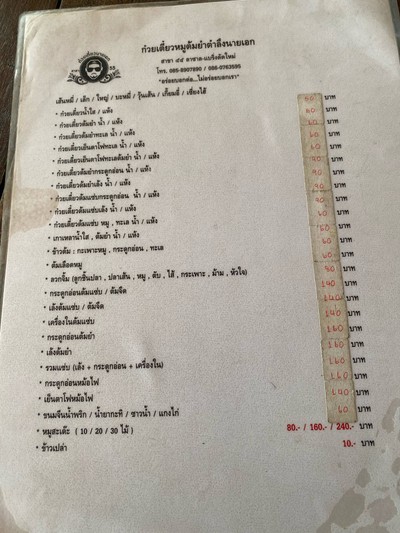 ก๋วยเตี๋ยวหมูต้มยำตำลึงนายเอก
สาขา ๔๔ ลาซาล-แบริ่งตัดใหม่
"อร่อยบอกต่อ...ไม่อร่อยบอกเรา"
เส้นหมี่ / เล็ก / ใหญ่ / บะหมี่ / วุ้นเส้น / เกี้ยมอี๋ / เซี่ยงไฮ้
• ก๋วยเตี๋ยวน้ำใส / แห้ง
• ก๋วยเตี๋ยวต้มยำ น้ำ / แห้ง
• ก๋วยเตี๋ยวต้มยำทะเล น้ำ / แห้ง
• ก๋วยเตี๋ยวเย็นตาโฟทะเล น้ำ / แห้ง
• ก๋วยเตี๋ยวเย็นตาโฟทะเลต้มยำ น้ำ / แห้ง
• ก๋วยเตี๋ยวต้มยำกระดูกอ่อน น้ำ / แห้ง
• ก๋วยเตี๋ยวต้มยำเล้ง น้ำ / แห้ง
• ก๋วยเตี๋ยวต้มแซ่บกระดูกอ่อน น้ำ / แห้ง
• ก๋วยเตี๋ยวต้มแซ่บเล้ง น้ำ / แห้ง
• ก๋วยเตี๋ยวต้มแซ่บ หมู , ทะเล น้ำ / แห้ง
• เกาเหลาน้ำใส , ต้มยำ น้ำ / แห้ง
• ข้าวต้ม : กะเพาะหมู , กระดูกอ่อน , ทะเล
• ต้มเลือดหมู
• ลวกจิ้ม (ลูกชิ้นปลา , ปลาเส้น , หมู , ตับ , ไส้ , กระเพาะ , ม้าม , หัวใจ) 80 บาท
• กระดูกอ่อนต้มแซ่บ / ต้มจืด 140 บาท
• เล้งต้มแซ่บ / ต้มจืด 140 บาท
• เครื่องในต้มแซ่บ 140 บาท
• กระดูกอ่อนต้มยำ 160 บาท
• เล้งต้มยำ 160 บาท
• รวมแซ่บ (เล้ง + กระดูกอ่อน + เครื่องใน) 160 บาท
• กระดูกอ่อนหม้อไฟ 160 บาท
• เย็นตาโฟหม้อไฟ 140 บาท
• ขนมจีนน้ำพริก / น้ำยากะทิ / ซาวน้ำ / แกงไก่ 60 บาท
• หมูสะเต๊ะ ( 10 / 20 / 30 ไม้ ) 80.- / 160.- / 240.- บาท
• ข้าวเปล่า 10.- บาท